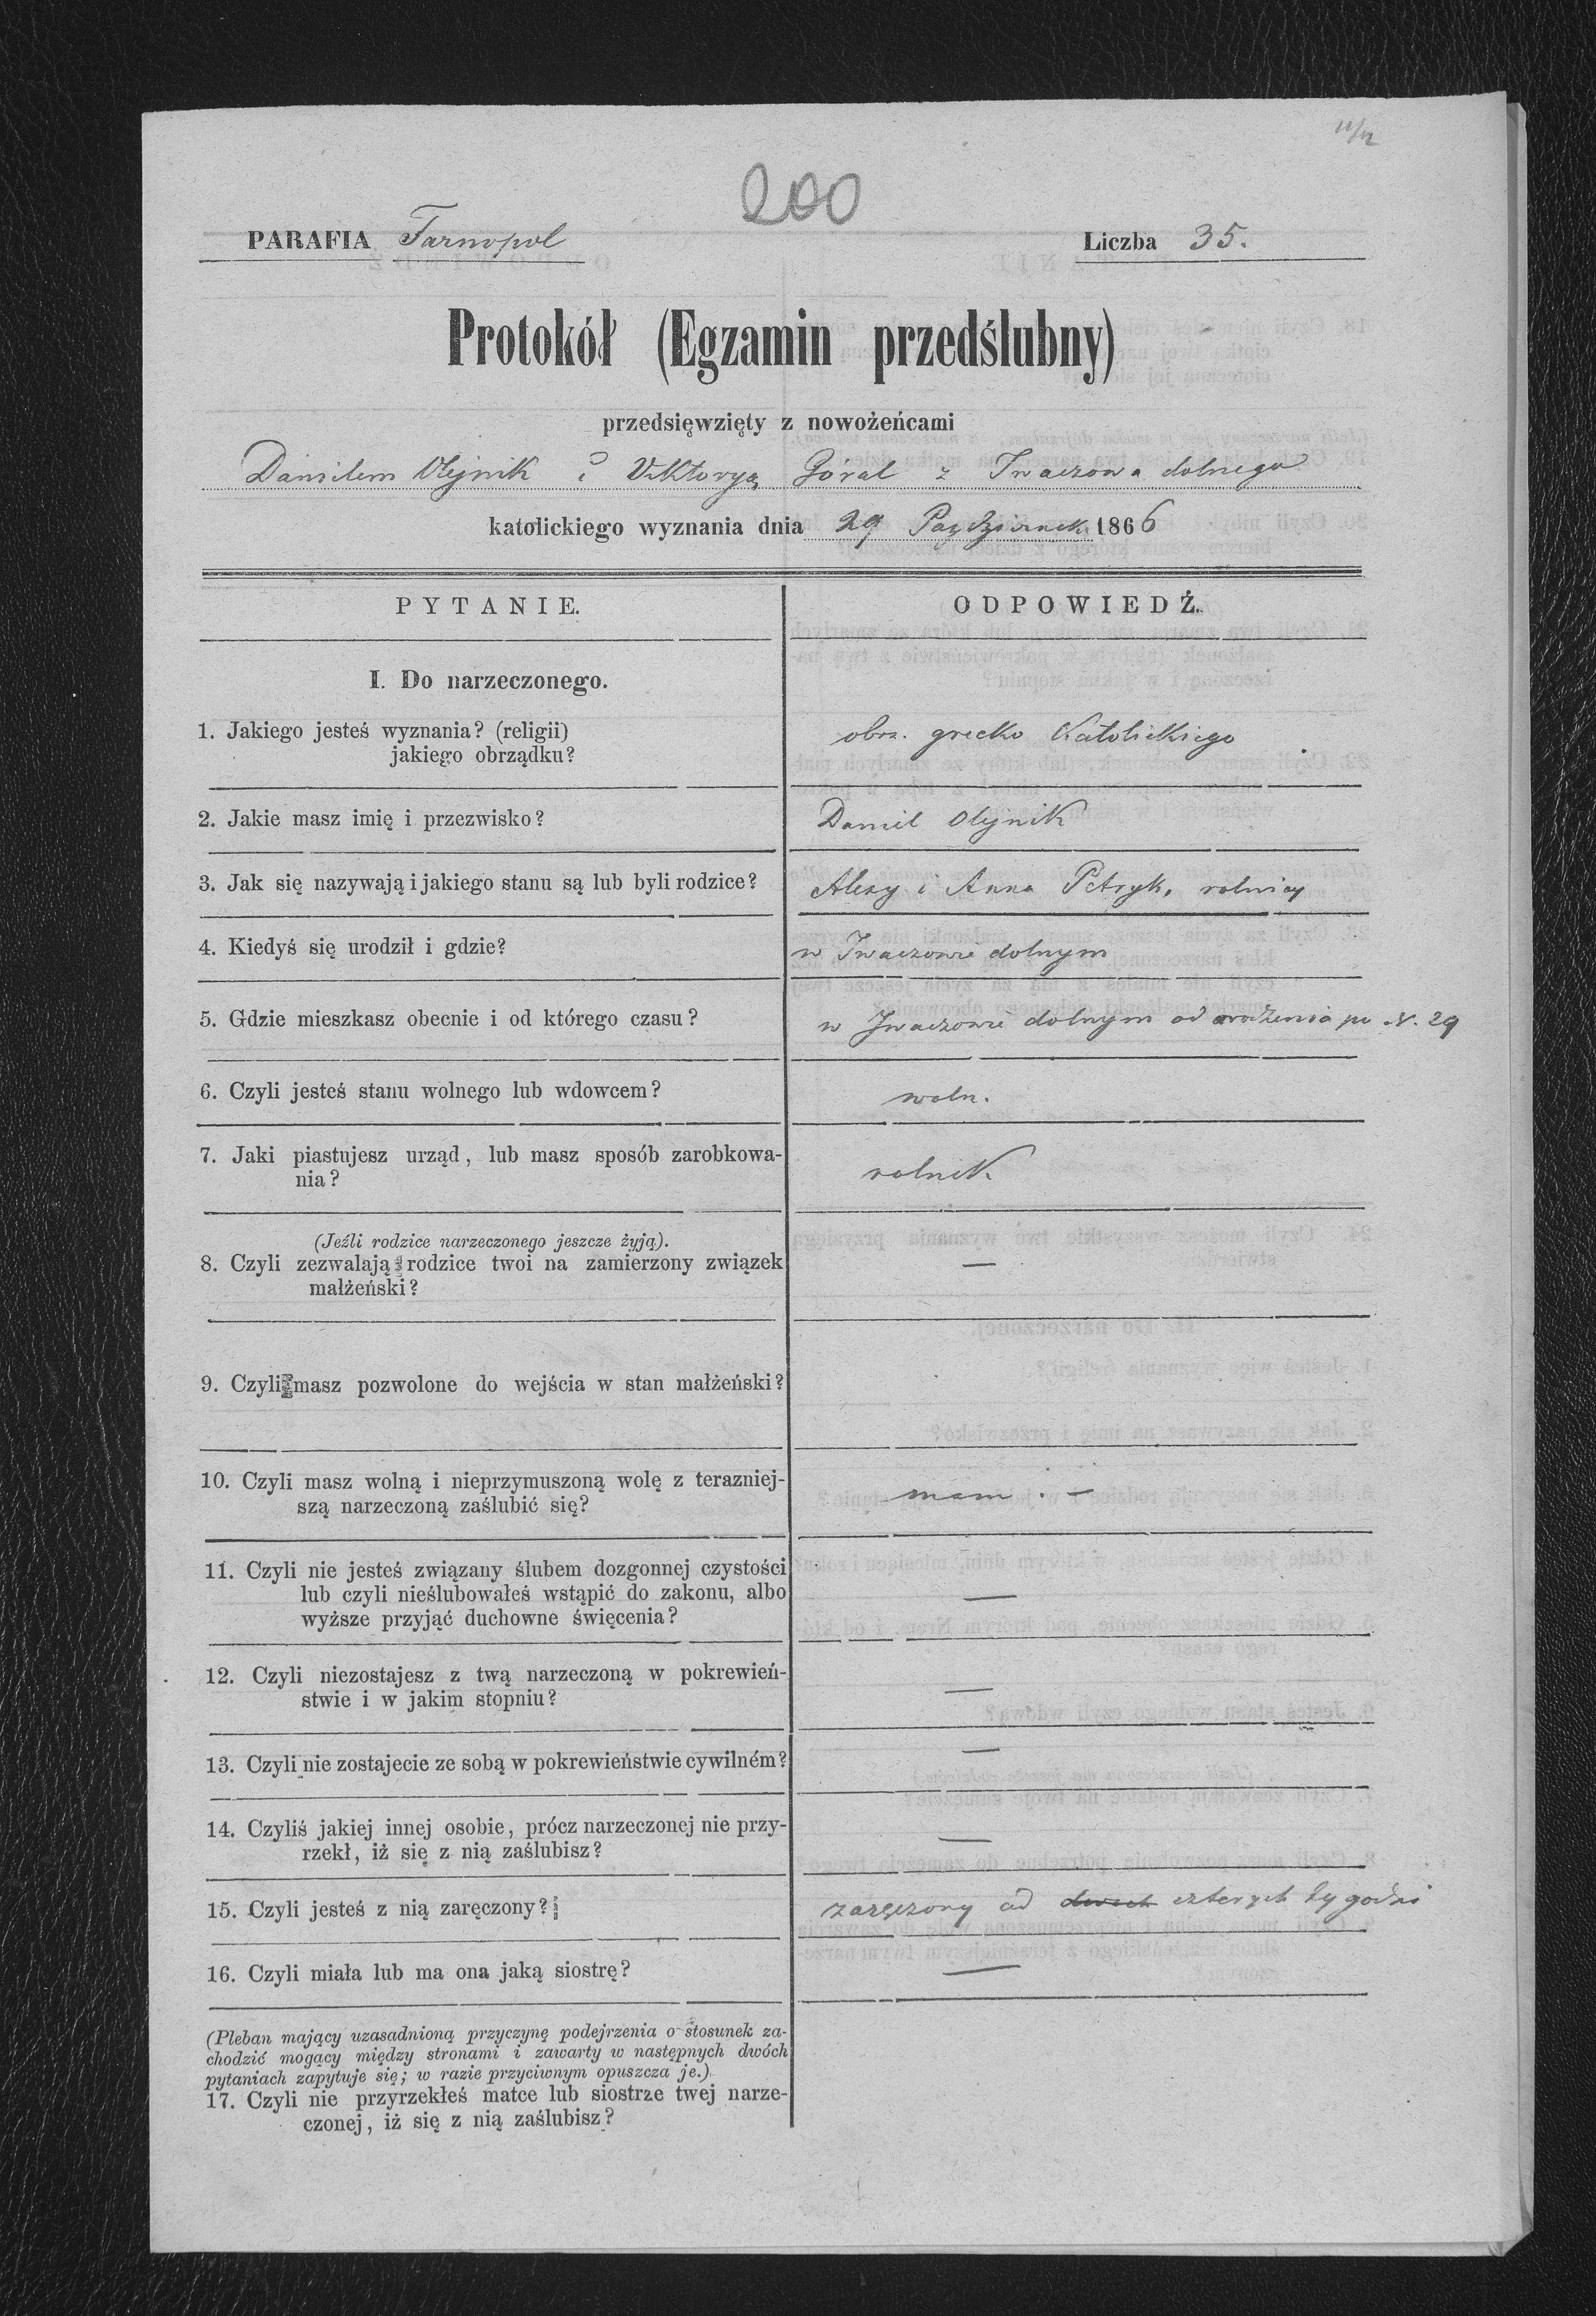 11/12
200
PARAFIA Tarnopol Liczba 35.
Protokół (Egzamin przedślubny)
przedsięwzięty z nowożeńcami
Danilem Olejnik i Viktoryą Góral z Iwaczowa dolnego
katolickiego wyznania dnia 29 Październik 1866
PYTANIE. ODPOWIEDŹ.
I. Do narzeczonego.
1. Jakiego jesteś wyznania? (religii)
jakiego obrządku?
obrz. grecko Katolickiego
2. Jakie masz imię i przezwisko? Daniel Olejnik
3. Jak się nazywają i jakiego stanu są lub byli rodzice? Alexy i Anna Petryk, rolnicy
4. Kiedyś się urodził i gdzie? w Iwaczowie dolnym
5. Gdzie mieszkasz obecnie i od którego czasu? w Iwaczowie dolnym od urodzenia pu N. 29
6. Czyli jesteś stanu wolnego lub wdowcem? woln.
7. Jaki piastujesz urząd, lub masz sposób zarobkowa-
nia?
rolnik
(Jeźli rodzice narzeczonego jeszcze żyją).
8. Czyli zezwalają rodzice twoi na zamierzony związek —
małżeński?
9. Czyli masz pozwolone do wejścia w stan małżeński?
10. Czyli masz wolną i nieprzymuszoną wolę z terazniej-
szą narzeczoną zaślubić się?
mam. —
11. Czyli nie jesteś związany ślubem dozgonnej czystości
lub czyli nieślubowałeś wstąpić do zakonu, albo —
wyższe przyjąć duchowne święcenia?
12. Czyli niezostajesz z twą narzeczoną w pokrewień-
stwie i w jakim stopniu? —
13. Czyli nie zostajecie ze sobą w pokrewieństwie cywilném? —
14. Czyliś jakiej innej osobie, prócz narzeczonej nie przy-
rzekł, iż się z nią zaślubisz? —
15. Czyli jesteś z nią zaręczony? zaręczony od dwóch czterych tygodni
16. Czyli miała lub ma ona jaką siostrę? —
(Pleban mający uzasadnioną przyczynę podejrzenia o stosunek za-
chodzić mogący między stronami i zawarty w następnych dwóch
pytaniach zapytuje się; w razie przyciwnym opuszcza je.)
17. Czyli nie przyrzekłeś matce lub siostrze twej narze-
czonej, iż się z nią zaślubisz?